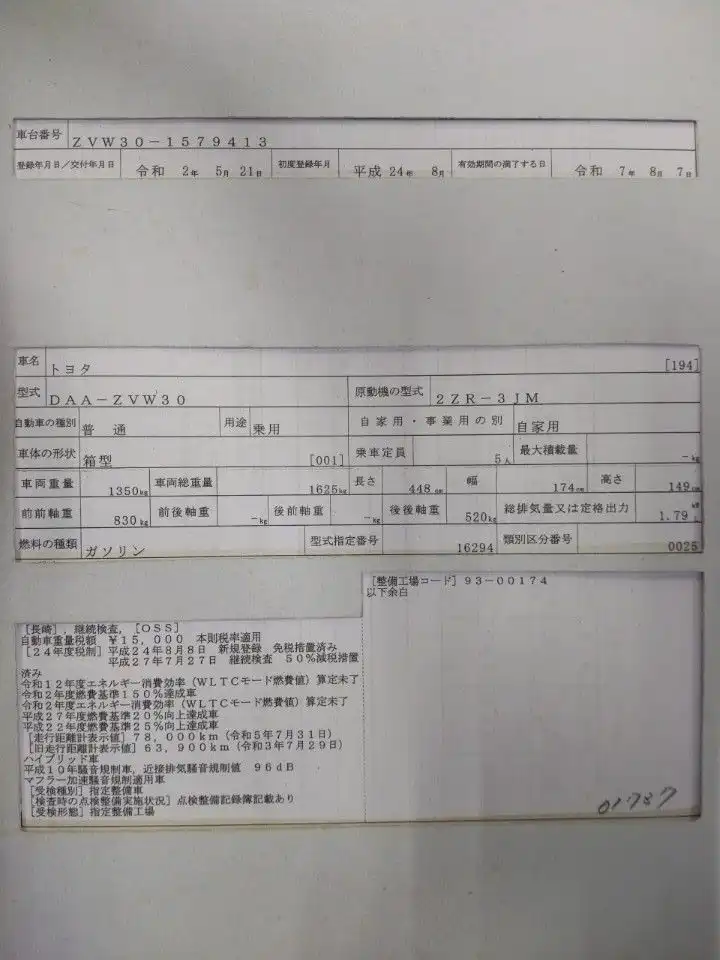 車台番号 ZVW30-1579413
登録年月日/交付年月日 令和 2年 5月 21日 初度登録年月 平成 24年 8月 有効期間の満了する日 令和 7年 8月 7日
車名 トヨタ [194]
型式 DAA-ZVW30 原動機の型式 2ZR-3JM
自動車の種別 普通 用途 乗用 自家用・事業用の別 自家用
車体の形状 箱型 [001] 乗車定員 5人 最大積載量 -kg
車両重量 1350kg 車両総重量 1625kg 長さ 448cm 幅 174cm 高さ 149cm
前前軸重 830kg 前後軸重 -kg 後前軸重 -kg 後後軸重 520kg 総排気量又は定格出力 1.79 kW L
燃料の種類 ガソリン 型式指定番号 16294 類別区分番号 0025
[整備工場コード] 93-00174
以下余白
[長崎],継続検査,[OSS]
自動車重量税額 ¥15,000 本則税率適用
[24年度税制] 平成24年8月8日 新規登録 免税措置済み
平成27年7月27日 継続検査 50%減税措置
済み
令和12年度エネルギー消費効率(WLTCモード燃費値)算定未了
令和2年度燃費基準150%達成車
令和2年度エネルギー消費効率(WLTCモード燃費値)算定未了
平成27年度燃費基準20%向上達成車
平成22年度燃費基準25%向上達成車
[走行距離計表示値] 78,000km(令和5年7月31日)
[旧走行距離計表示値] 63,900km(令和3年7月29日)
ハイブリッド車
平成10年騒音規制車,近接排気騒音規制値 96dB
マフラー加速騒音規制適用車
[受検種別] 指定整備車
[検査時の点検整備実施状況] 点検整備記録簿記載あり
[受検形態] 指定整備工場
01787